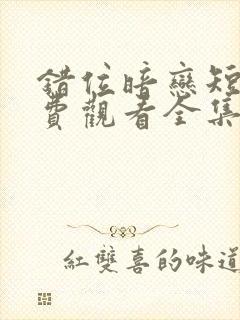 錯位暗戀短
費觀看全集
紅雙喜的味道